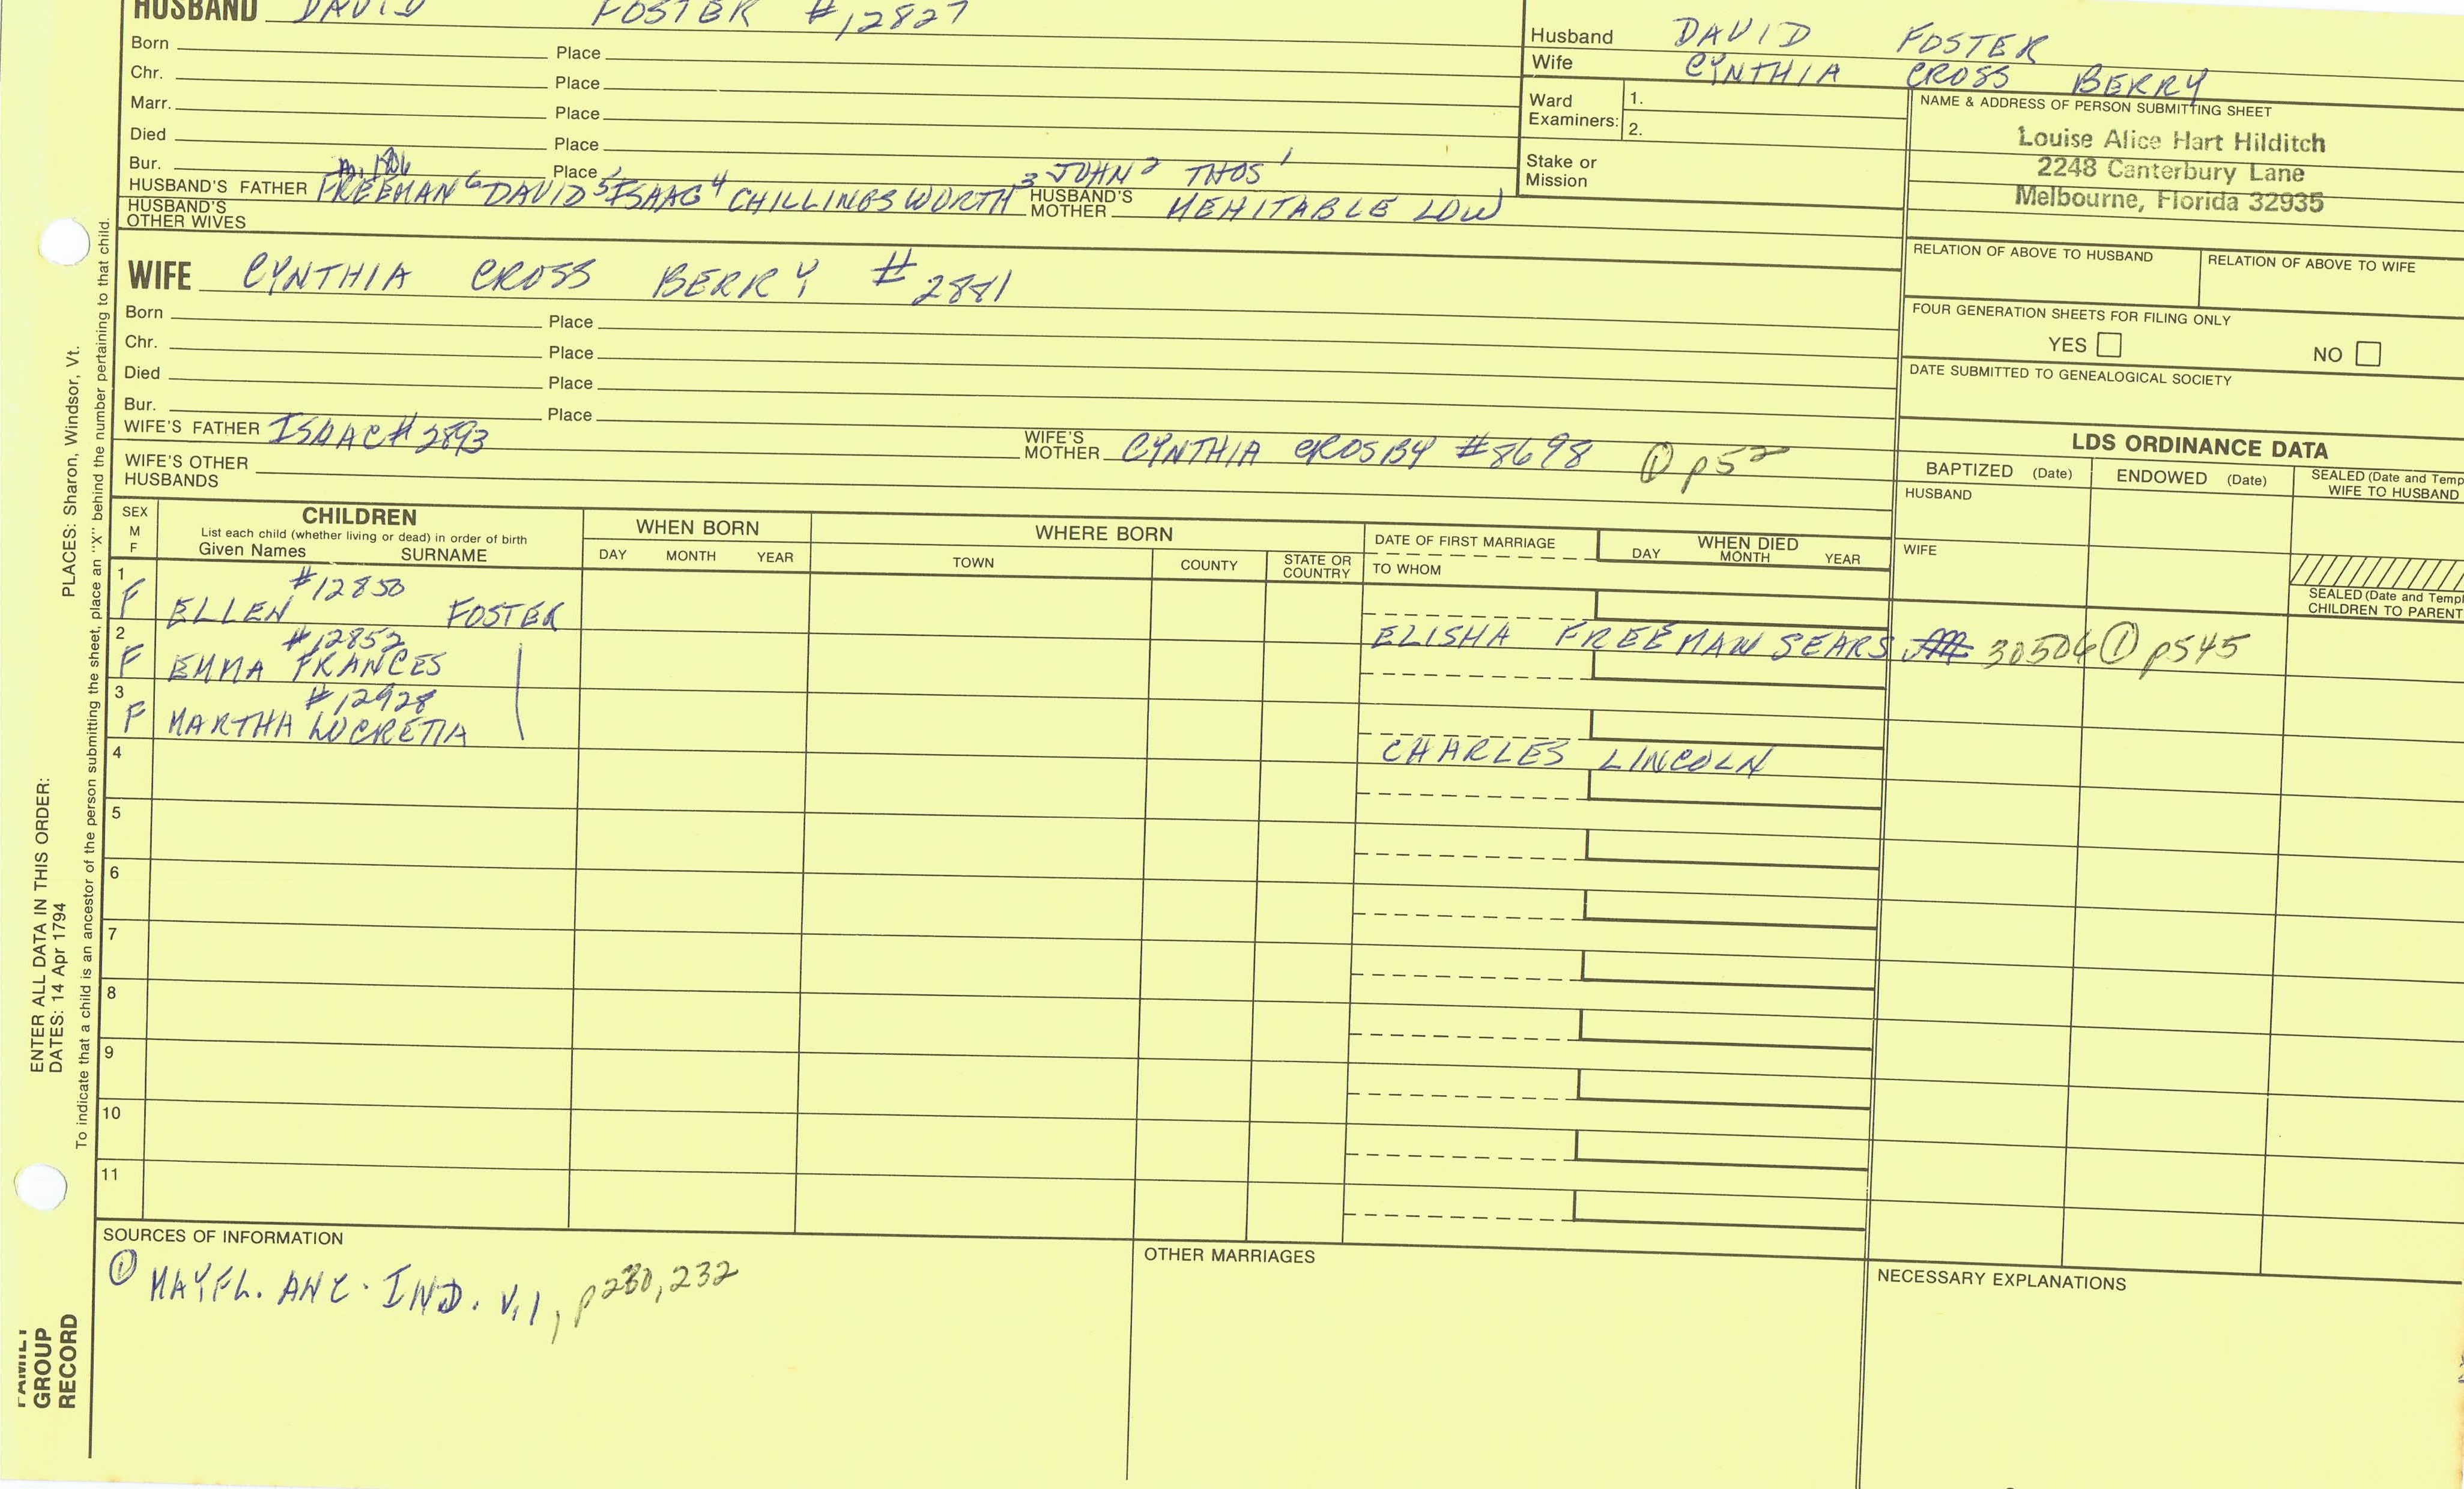 HUSBAND DAVID FOSTER #12827
Born Place
Chr. Place
Marr. Place
Died Place
Bur. Place
HUSBAND'S FATHER FREEMAN 6 DAVID 5 ISAAC 4 CHILLINGSWORTH 3 JOHN 2 THOS 1 HUSBAND'S MOTHER MEHITABLE LOW
HUSBAND'S OTHER WIVES
Husband DAVID FOSTER
Wife CYNTHIA CROSS BERRY
Ward Examiners: 1.
2.
Stake or Mission
NAME & ADDRESS OF PERSON SUBMITTING SHEET
Louise Alice Hart Hilditch
2248 Canterbury Lane
Melbourne, Florida 32935
RELATION OF ABOVE TO HUSBAND RELATION OF ABOVE TO WIFE
FOUR GENERATION SHEETS FOR FILING ONLY
YES NO
DATE SUBMITTED TO GENEALOGICAL SOCIETY
WIFE CYNTHIA CROSS BERRY #2881
Born Place
Chr. Place
Died Place
Bur. Place
WIFE'S FATHER ISAAC #2893 WIFE'S MOTHER CYNTHIA CROSBY #8698 ① p52
WIFE'S OTHER HUSBANDS
LDS ORDINANCE DATA
BAPTIZED (Date) ENDOWED (Date) SEALED (Date and Temp
WIFE TO HUSBAND
HUSBAND
WIFE
SEALED (Date and Templ
CHILDREN TO PARENT
SEX
M
F
CHILDREN
List each child (whether living or dead) in order of birth
Given Names SURNAME
WHEN BORN
DAY MONTH YEAR
WHERE BORN
TOWN COUNTY STATE OR COUNTRY
DATE OF FIRST MARRIAGE
TO WHOM
WHEN DIED
DAY MONTH YEAR
1 #12850
F ELLEN FOSTER
ELISHA FREEMAN SEARS 30506 ① p545
2 #12852
F EMMA FRANCES
3 #12928
F MARTHA LUCRETIA
CHARLES LINCOLN
4
5
6
7
8
9
10
11
SOURCES OF INFORMATION
① MAYFL. ANC. IND. V.1, p230, 232
OTHER MARRIAGES
NECESSARY EXPLANATIONS
PLACES: Sharon, Windsor, Vt.
To indicate that a child is an ancestor of the person submitting the sheet, place an "X" behind the number pertaining to that child.
ENTER ALL DATA IN THIS ORDER:
DATES: 14 Apr 1794
FAMILY
GROUP
RECORD